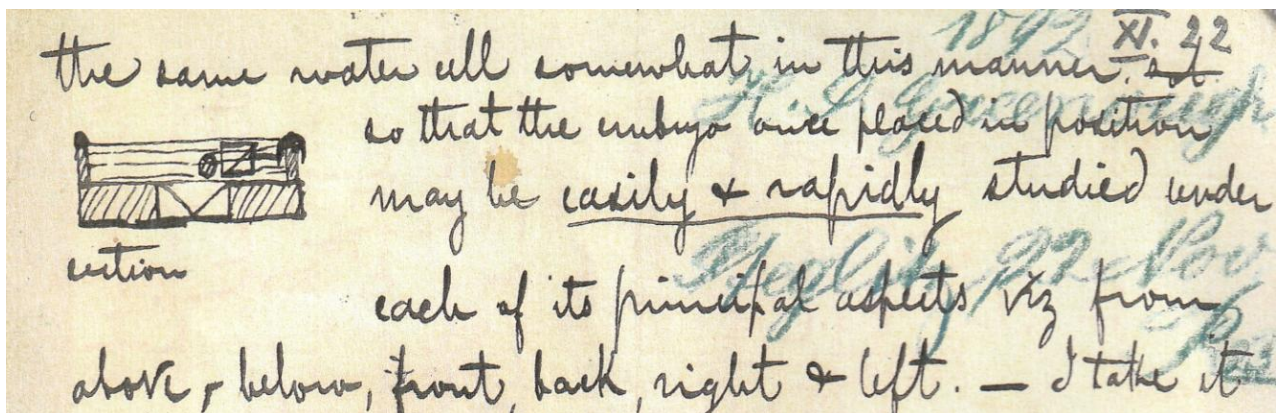 1892 XI. 22
the same water cell somewhat in this manner.
so that the embryo once placed in position
may be easily & rapidly studied under
section
Steglitz, 22 Nov
each of its principal aspects viz from
above, below, front, back, right & left. — I take it